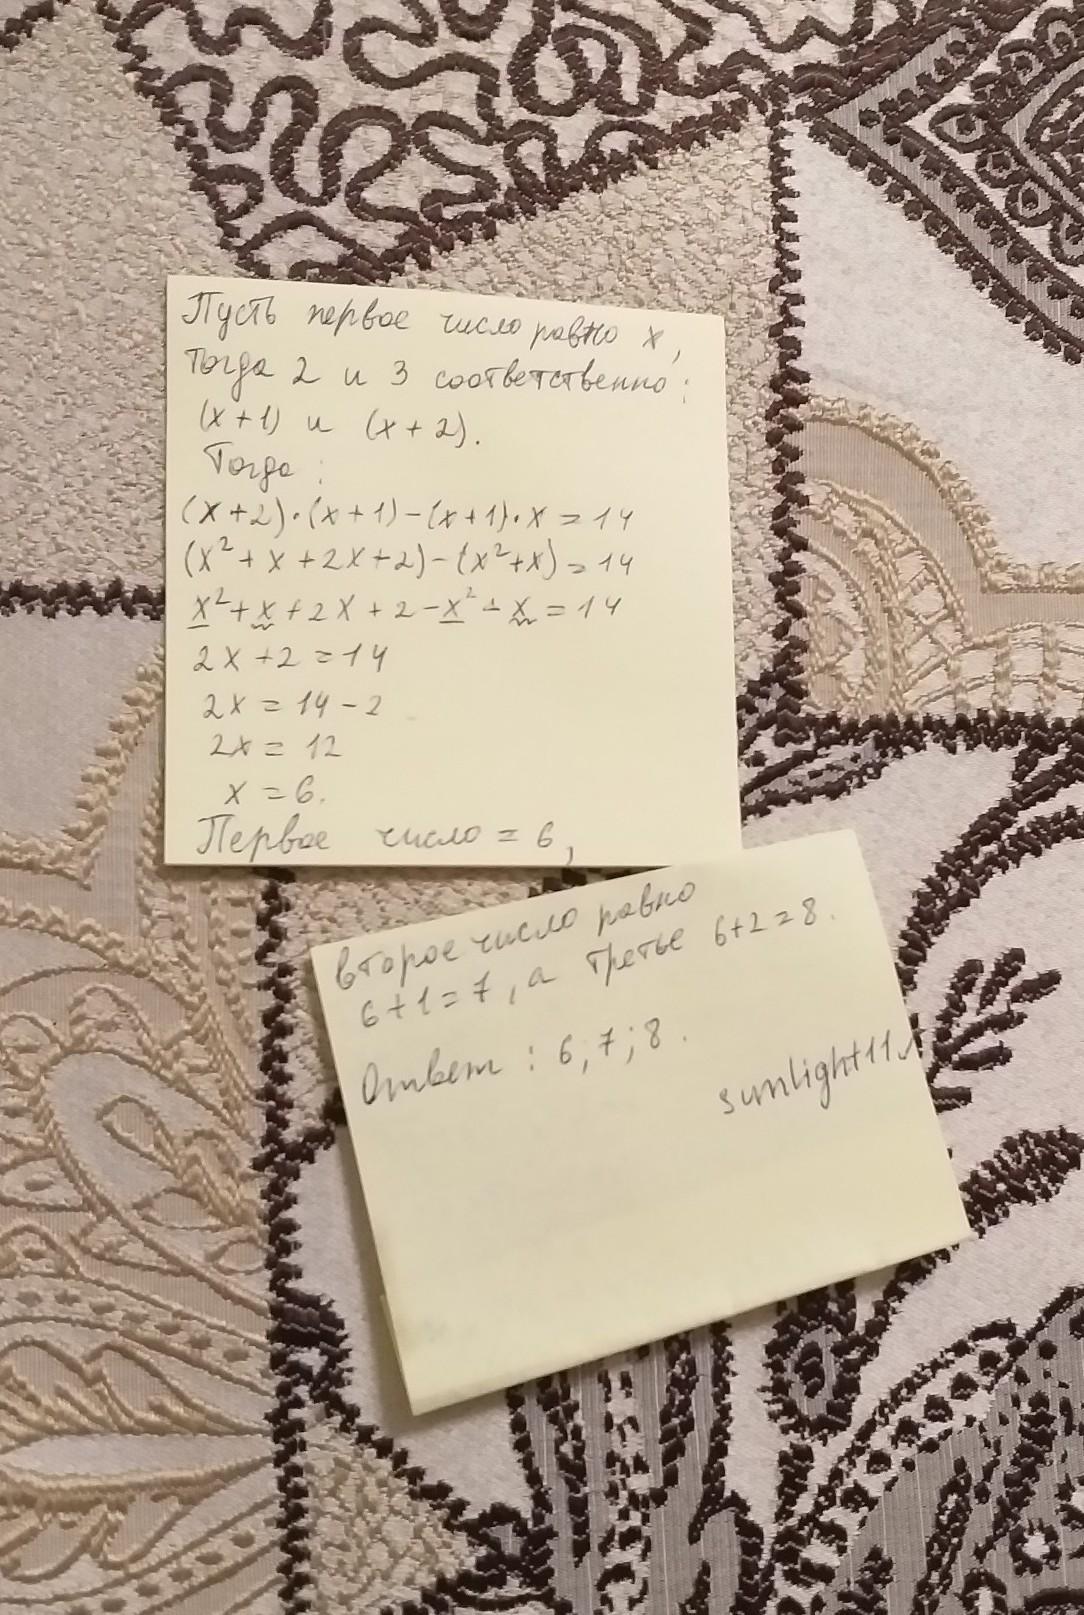 Пусть первое число равно x,
тогда 2 и 3 соответственно:
(x+1) и (x+2).
Тогда:
(x+2)·(x+1)-(x+1)·x=14
(x²+x+2x+2)-(x²+x)=14
x²+x+2x+2-x²-x=14
2x+2=14
2x=14-2
2x=12
x=6.
Первое число = 6,
второе число равно
6+1=7, а третье 6+2=8.
Ответ: 6; 7; 8.
sunlight11